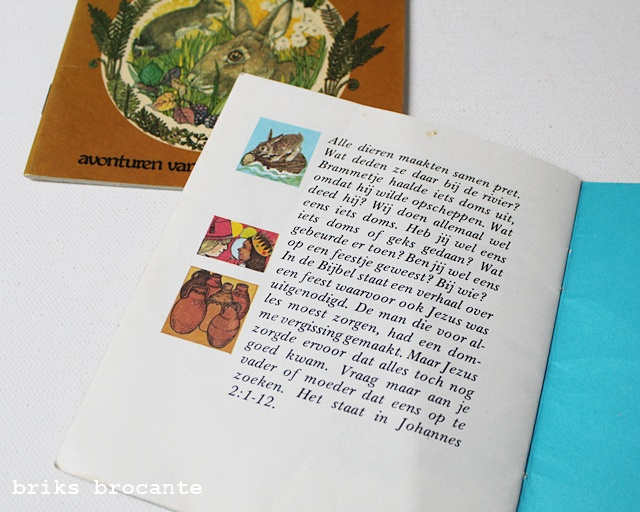 avonturen van
Alle dieren maakten samen pret.
Wat deden ze daar bij de rivier?
Brammetje haalde iets doms uit,
omdat hij wilde opscheppen. Wat
deed hij? Wij doen allemaal wel
eens iets doms. Heb jij wel eens
iets doms of geks gedaan? Wat
gebeurde er toen? Ben jij wel eens
op een feestje geweest? Bij wie?
In de Bijbel staat een verhaal over
een feest waarvoor ook Jezus was
uitgenodigd. De man die voor al-
les moest zorgen, had een dom-
me vergissing gemaakt. Maar Jezus
zorgde ervoor dat alles toch nog
goed kwam. Vraag maar aan je
vader of moeder dat eens op te
zoeken. Het staat in Johannes
2:1-12.
briks brocante